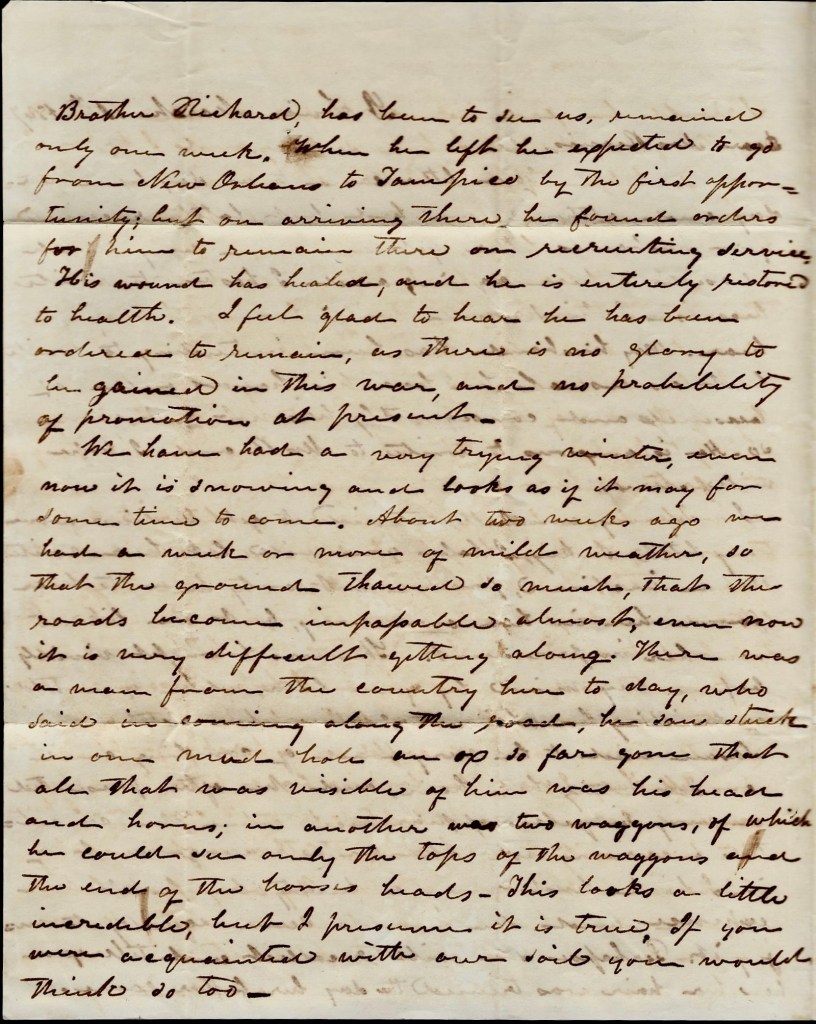 Brother Richard, has been to see us, remained
only one week. When he left he expected to go
from New Orleans to Tampico by the first oppor=
tunity; but on arriving there he found orders
for him to remain there on recruiting service.
His wound has healed, and he is entirely restored
to health. I feel glad to hear he has been
ordered to remain, as there is no glory to
be gained in this war, and no probibility
of promotion at present_
We have had a very trying winter, even
now it is snowing and looks as if it may for
some time to come. About two weeks ago we
had a week or more of mild weather, so
that the ground thawed so much, that the
roads become impassable almost, even now
it is very difficult getting along. There was
a man from the country here to day, who
said in coming along the road, he saw stuck
in one mud hole an ox so far gone that
all that was visible of him was his head
and horns; in another was two waggons, of which
he could see only the tops of the waggons and
the end of the horses heads_ This looks a little
incredible, but I presume it is true, If you
were acquainted with our soil you would
think so too_